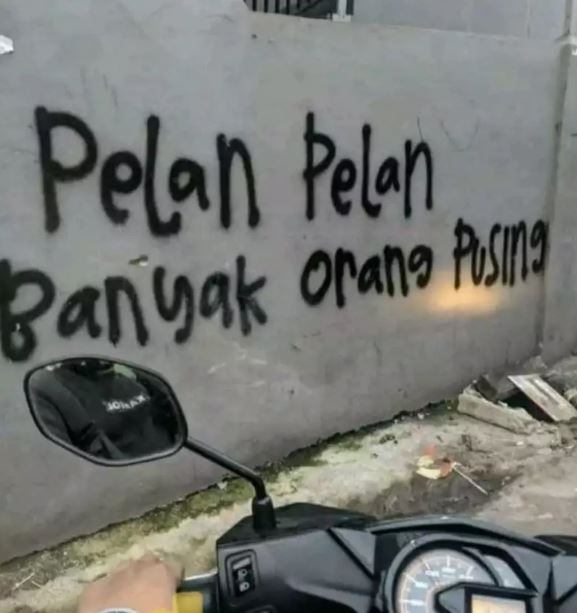 Pelan Pelan
Banyak orang Pusing